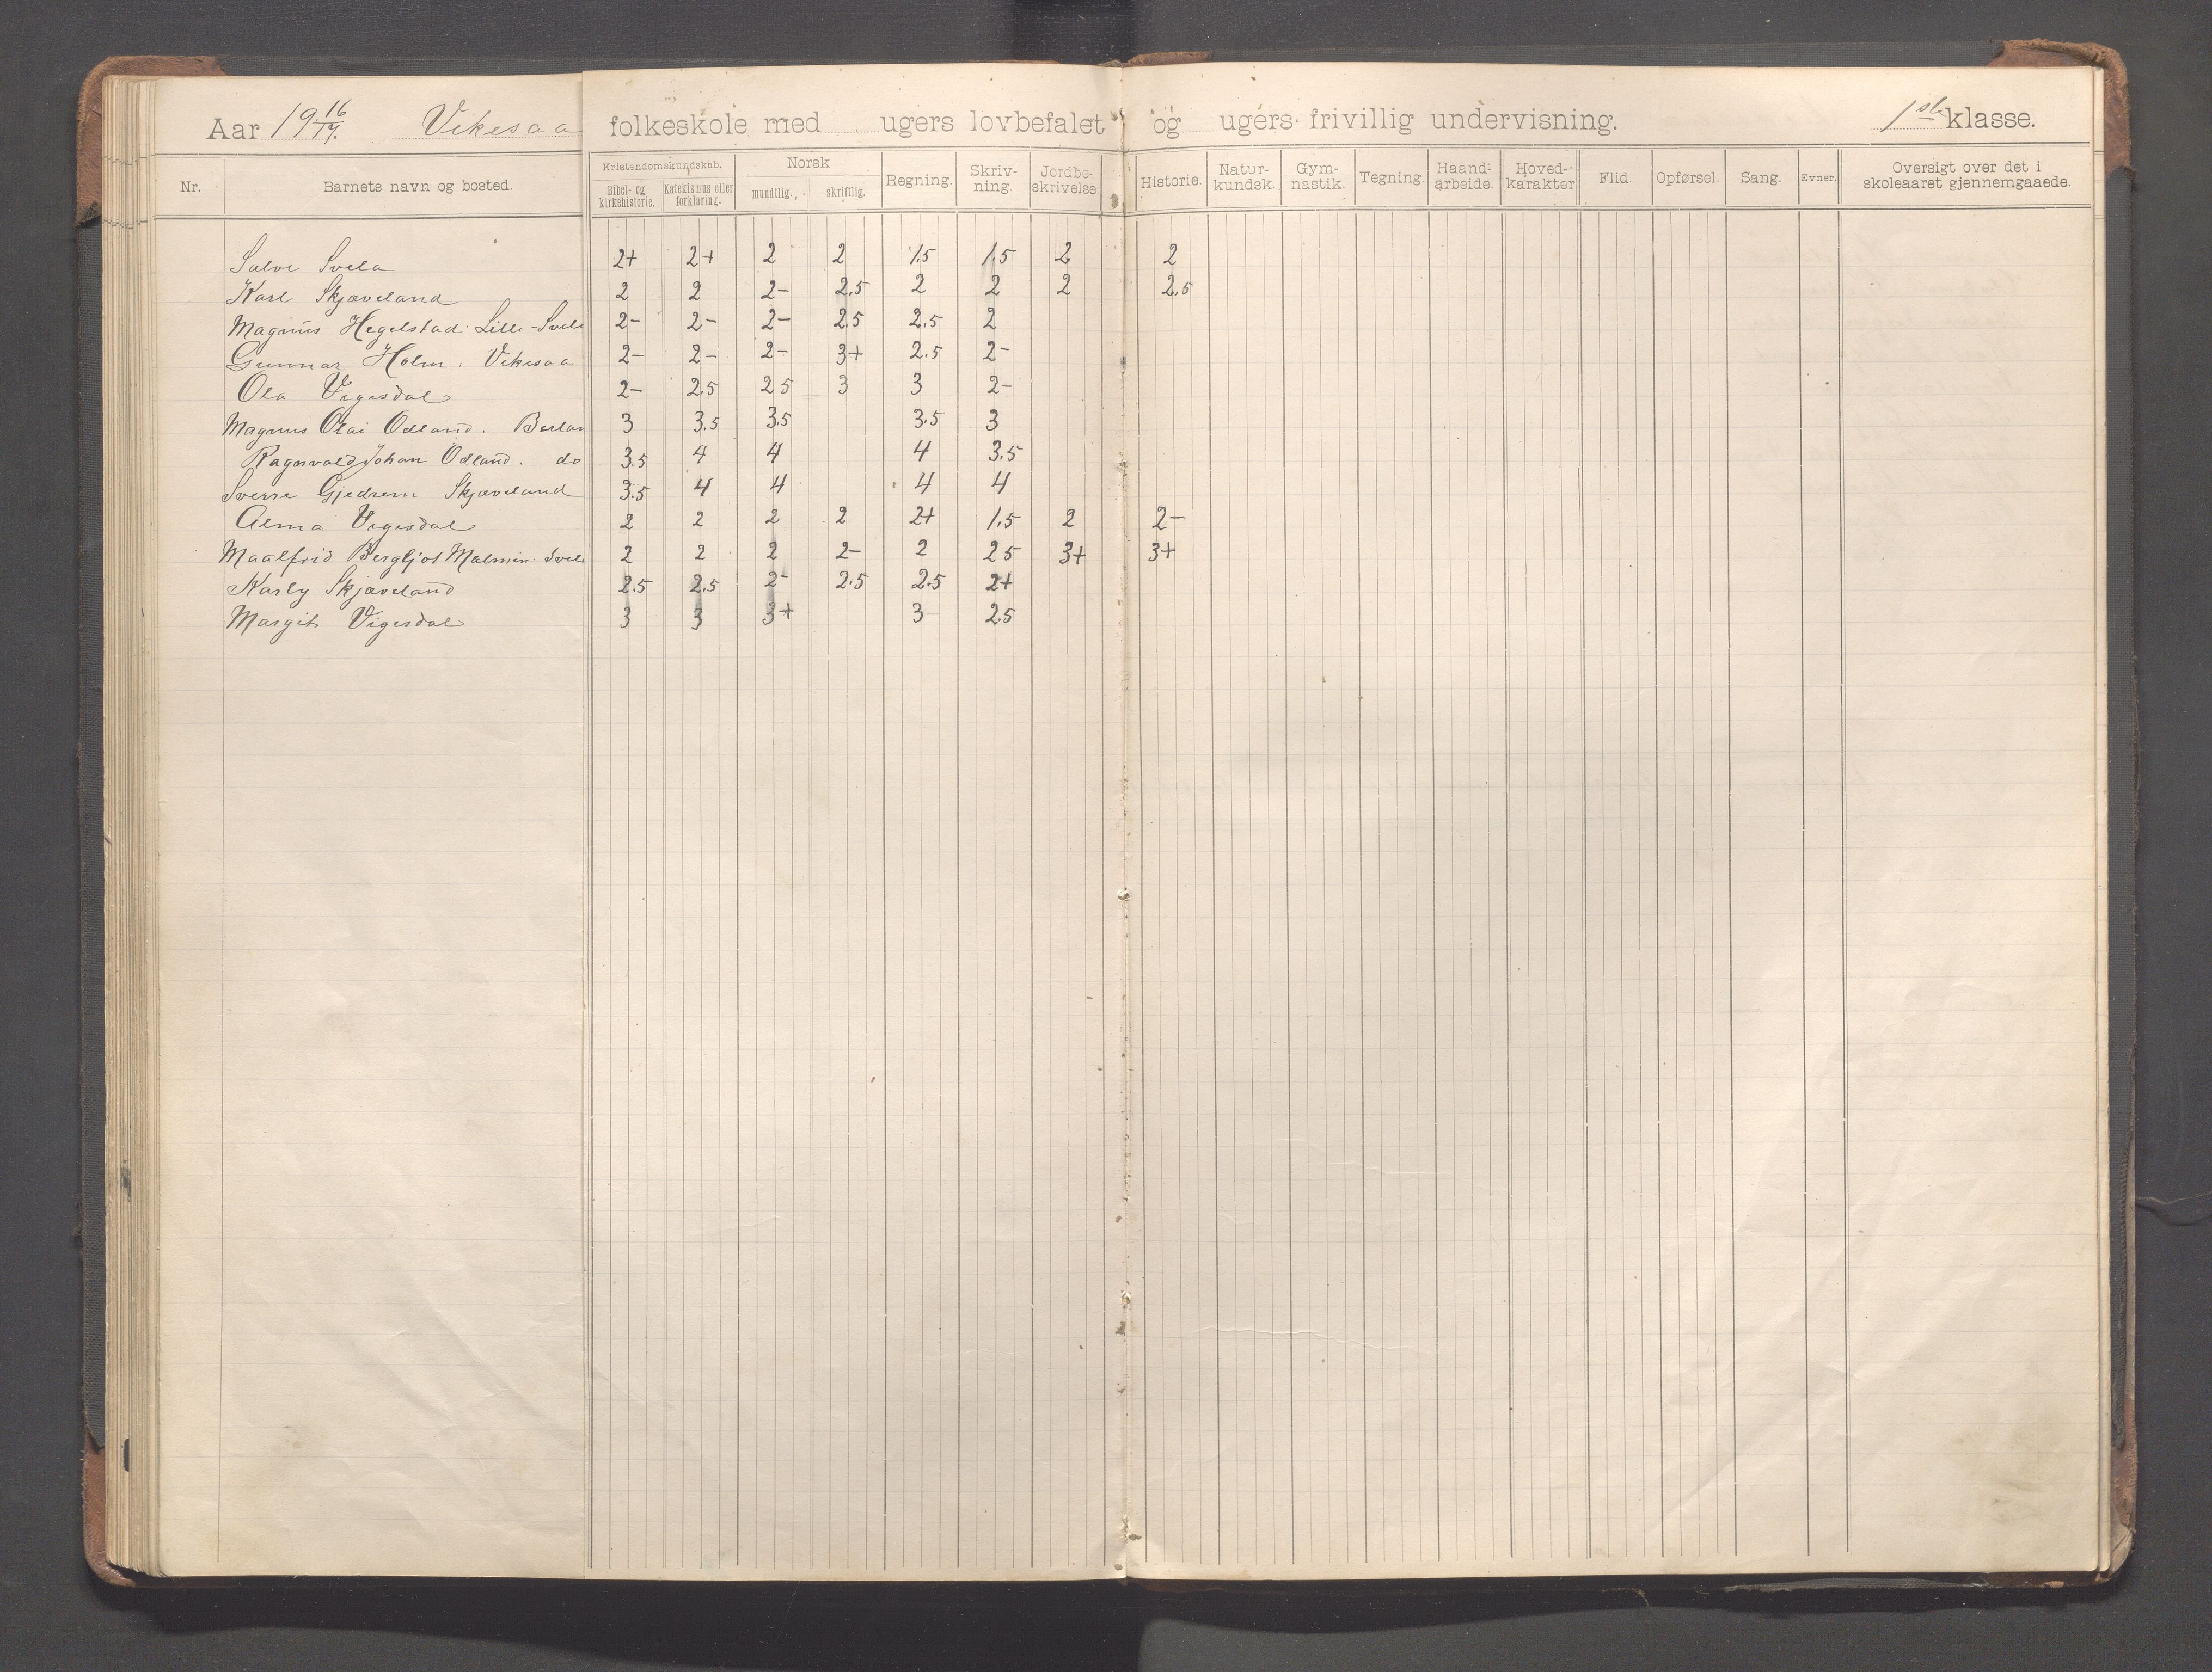 Aar 19 16/17. Vikesaa folkeskole med ugers lovbefalet og ugers frivillig undervisning. 1ste klasse.
Nr. Barnets navn og bosted. Kristendomskundskab. Bibel- og kirkehistorie. Katekismus eller forklaring. Norsk mundtlig. skriftlig. Regning. Skriv-ning. Jordbe-skrivelse. Historie. Natur-kundsk. Gym-nastik. Tegning Haand-arbeide. Hoved-karakter Flid. Opførsel. Sang. Evner. Oversigt over det i skoleaaret gjennemgaaede.
Salve Svela 2+ 2+ 2 2 1.5 1.5 2 2
Karl Skjæveland 2 2 2- 2.5 2 2 2 2.5
Magnus Hegelstad. Lille-Svela 2- 2- 2- 2.5 2.5 2
Gunnar Holm. Vikesaa 2- 2- 2- 3+ 2.5 2-
Ola Vigesdal 2- 2.5 2.5 3 3 2-
Magnus Olai Odland. 3 3.5 3.5 3.5 3
Ragnvald Johan Odland. do 3.5 4 4 4 3.5
Sverre Gjedrem Skjæveland 3.5 4 4 4 4
Alma Vigesdal 2 2 2 2 2+ 1.5 2 2-
Maalfrid Bergljot Malmin. Svela 2 2 2 2- 2 2.5 3+ 3+
Karly Skjæveland 2.5 2.5 2- 2.5 2.5 2+
Margit Vigesdal 3 3 3+ 3 2.5